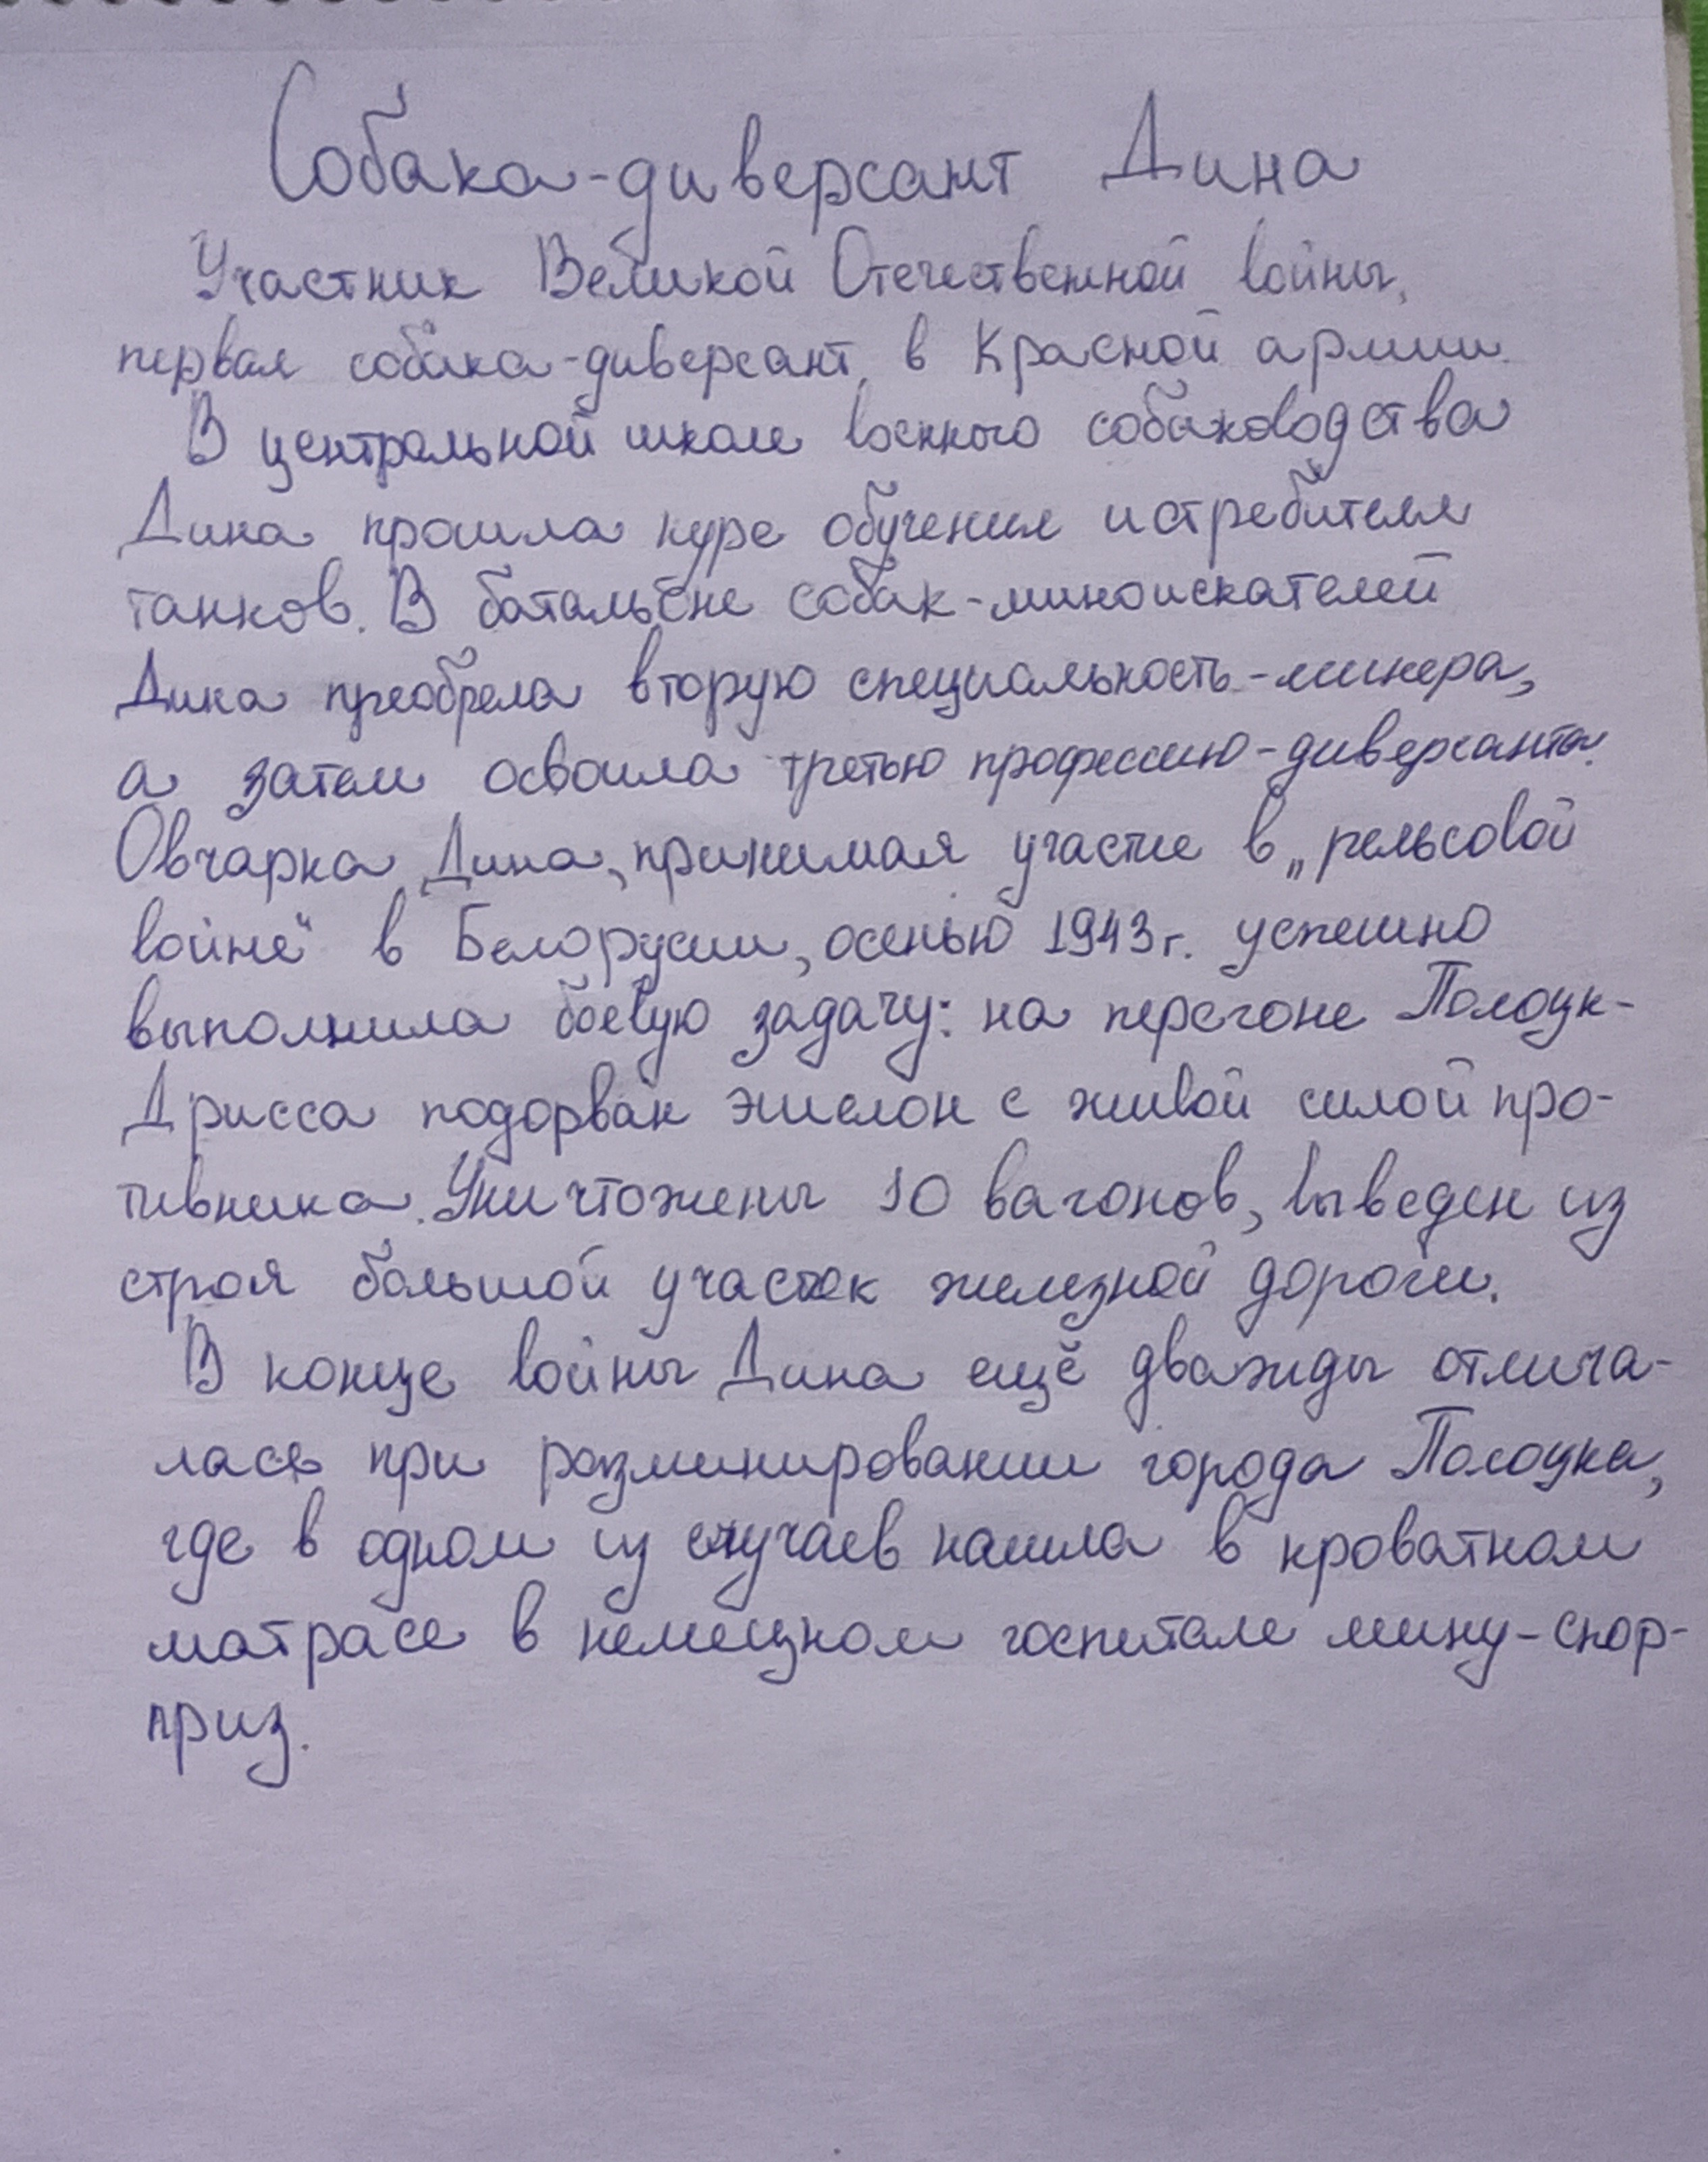 Собака-диверсант Дина
Участник Великой Отечественной войны,
первая собака-диверсант в Красной армии.
В центральной школе военного собаководства
Дина прошла курс обучения истребителя
танков. В батальоне собак-миноискателей
Дина преобрела вторую специальность-минера,
а затем освоила третью профессию-диверсанта.
Овчарка Дина, принимая участие в „рельсовой
войне“ в Белорусии, осенью 1943г. успешно
выполнила боевую задачу: на перегоне Полоцк-
Дрисса подорван эшелон с живой силой про-
тивника. Уничтожены 10 вагонов, выведен из
строя большой участок железной дороги.
В конце войны Дина ещё дважды отлича-
лась при разминировании города Полоцка,
где в одном из случаев нашла в кроватном
матрасе в немецком госпитале мину-сюр-
приз.